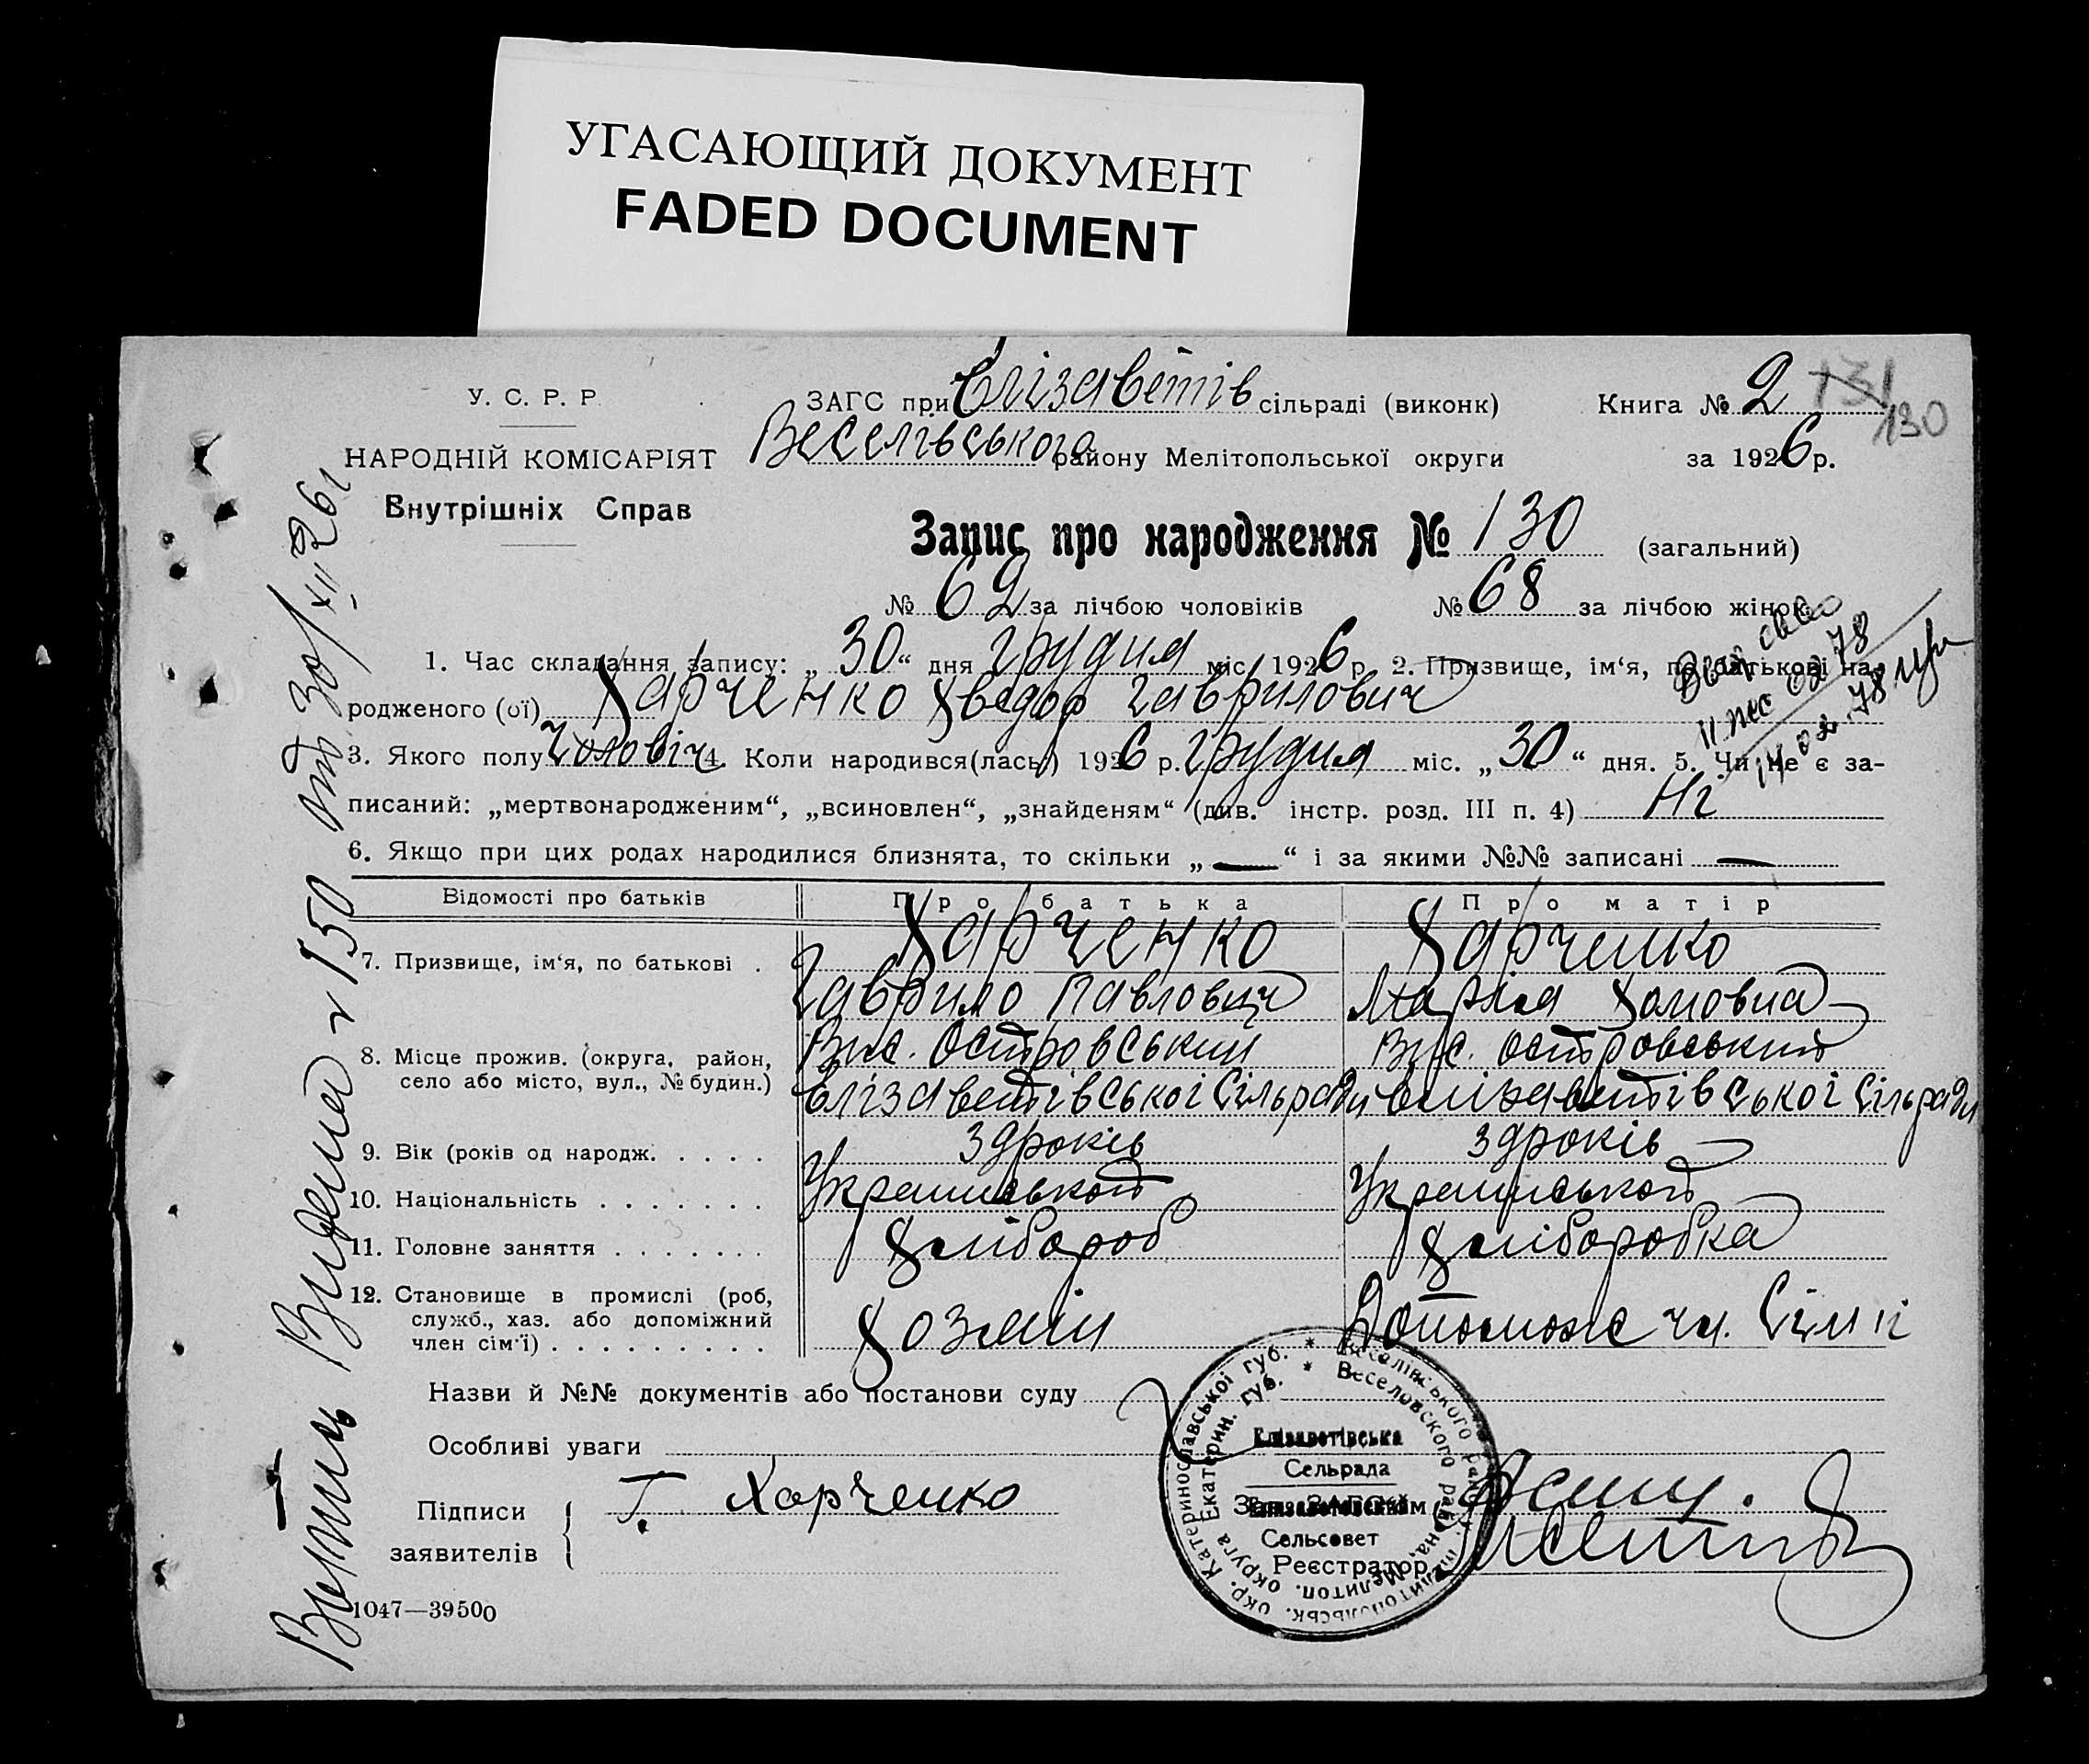 УГАСАЮЩИЙ ДОКУМЕНТ
FADED DOCUMENT
У. С. Р. Р.
НАРОДНІЙ КОМІСАРІЯТ
Внутрішніх Справ
ЗАГС при Єлізаветів сільраді (виконк)
Веселівського району Мелітопольської округи
Книга № 2 131
130
за 1926 р.
Запис про народження № 130 (загальний)
№ 62 за лічбою чоловіків № 68 за лічбою жінок
1. Час складання запису: „30“ дня грудня міс. 1926 р. 2. Призвище, ім‘я, по батькові на-
родженого (ої) Харченко Хведор Гаврилович
3. Якого полу чоловіч 4. Коли народився(лась) 1926 р. грудня міс. „30“ дня. 5. Чи не є за-
писаний: „мертвонародженим“, „всиновлен“, „знайденям“ (див. інстр. розд. III п. 4) Ні
6. Якщо при цих родах народилися близнята, то скільки „—“ і за якими №№ записані —
Відомості про батьків Про батька Про матір
7. Призвище, ім‘я, по батькові . Харченко Харченко
Гаврило Павлович Марія Хомовна
8. Місце прожив. (округа, район, Вис. Островський Вис. Островський
село або місто, вул., № будин.) Єлізаветівської Сільради Єлізаветівської Сільради
9. Вік (років од народж. . . . . 32 років 32 років
10. Національність . . . . . . . Українськой Українськой
11. Головне заняття . . . . . . . Хлібороб Хліборобка
12. Становище в промислі (роб,
служб., хаз. або допоміжний Хозяїн Допоможе чл. Сімїі
член сім‘ї) . . . . . . . . .
Назви й №№ документів або постанови суду
Особливі уваги
Підписи
заявителів
Г. Харченко
Зав. ЗАГС‘ом
Реєстратор
Катеринославської губ. * Веселівського району, Мелітопольськ. окр.
Екатерин. губ. * Веселовского района, Мелитоп. округа
Єлізаветівська
Сельрада
Елизаветовский
Сельсовет
1047—39500
Витиц Видена № 150 від 30/XII 26 г
11 02 78
14 02. 78